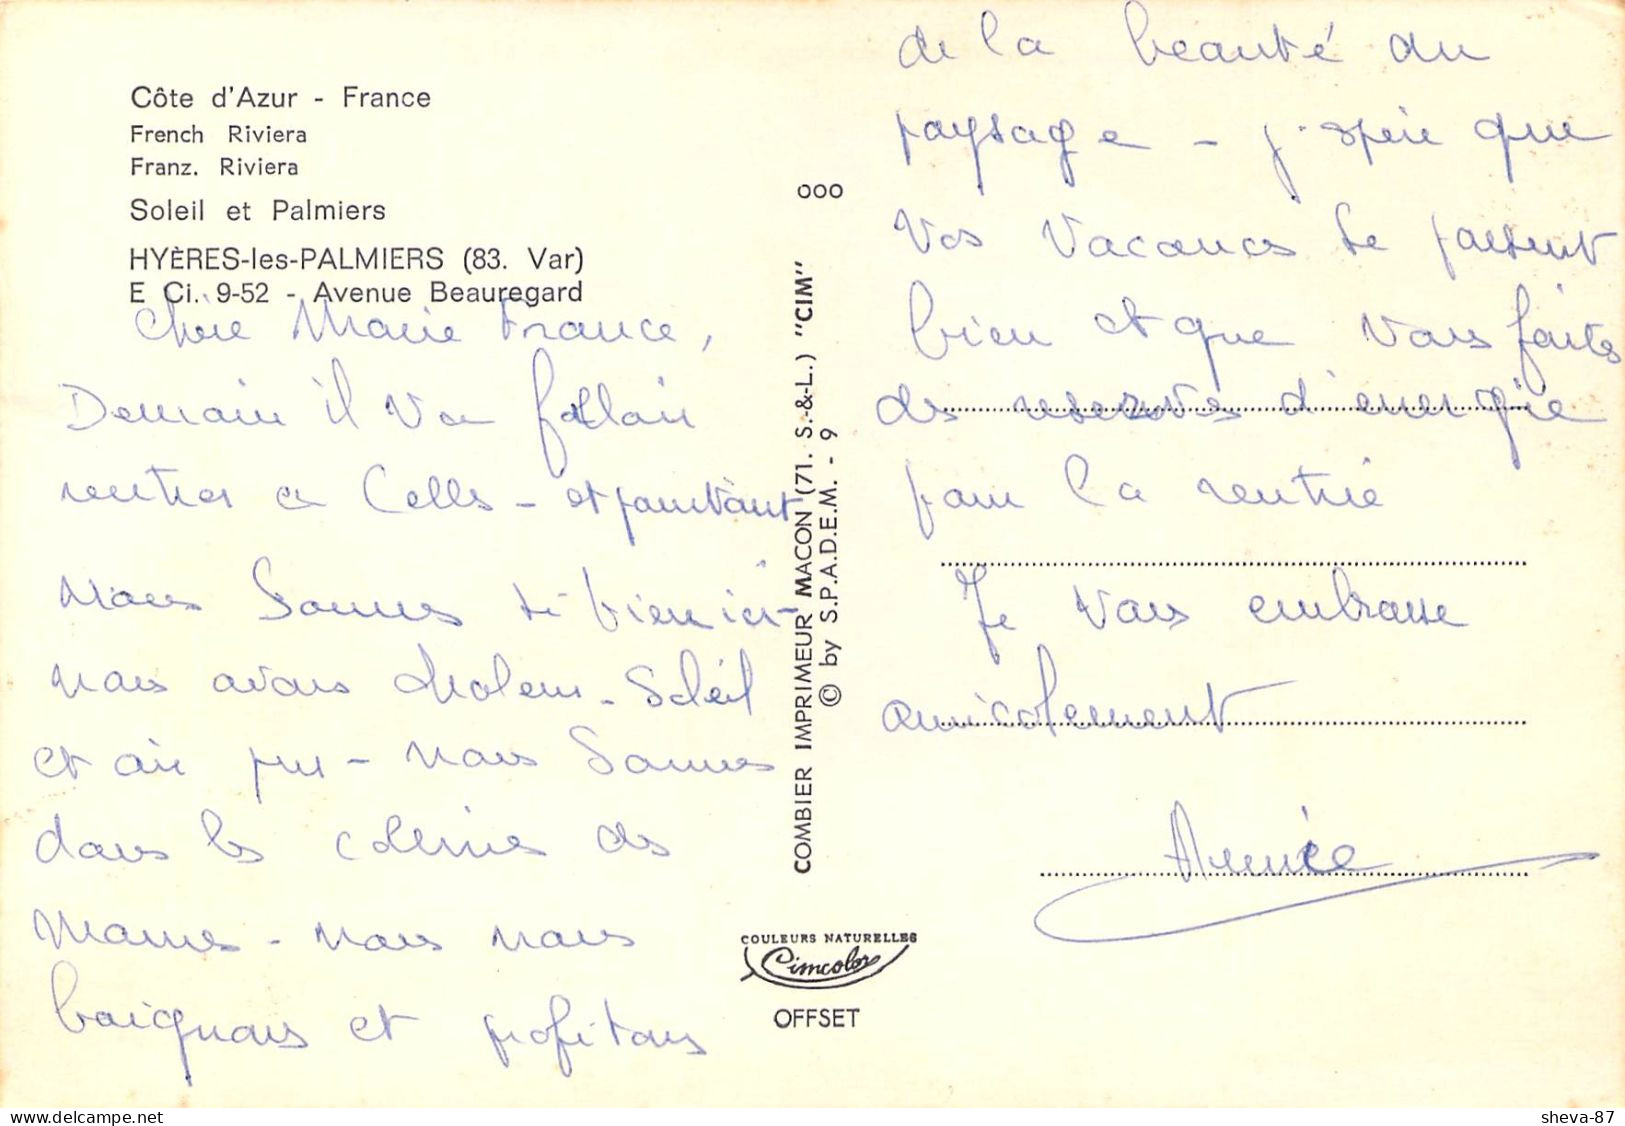 Côte d'Azur - France
French Riviera
Franz. Riviera
Soleil et Palmiers
HYÈRES-les-PALMIERS (83. Var)
E Ci. 9-52 - Avenue Beauregard
Chère Marie France,
Demain il va falloir
rentrer à Cells - et pourtant
nous sommes si bien ici -
nous avons chaleur - soleil
et air pur - nous sommes
dans les collines des
Maures - nous nous
baignons et profitons
de la beauté du
paysage - j'espère que
vos vacances se passent
bien et que vous faites
des reserves d'energie
pour la rentrée
Je vous embrasse
amicalement
Année
ooo
COMBIER IMPRIMEUR MACON (71. S.-&-L.) "CIM"
© by S.P.A.D.E.M. - 9
COULEURS NATURELLES
Cimcolor
OFFSET
delcampe.net
sheva-87